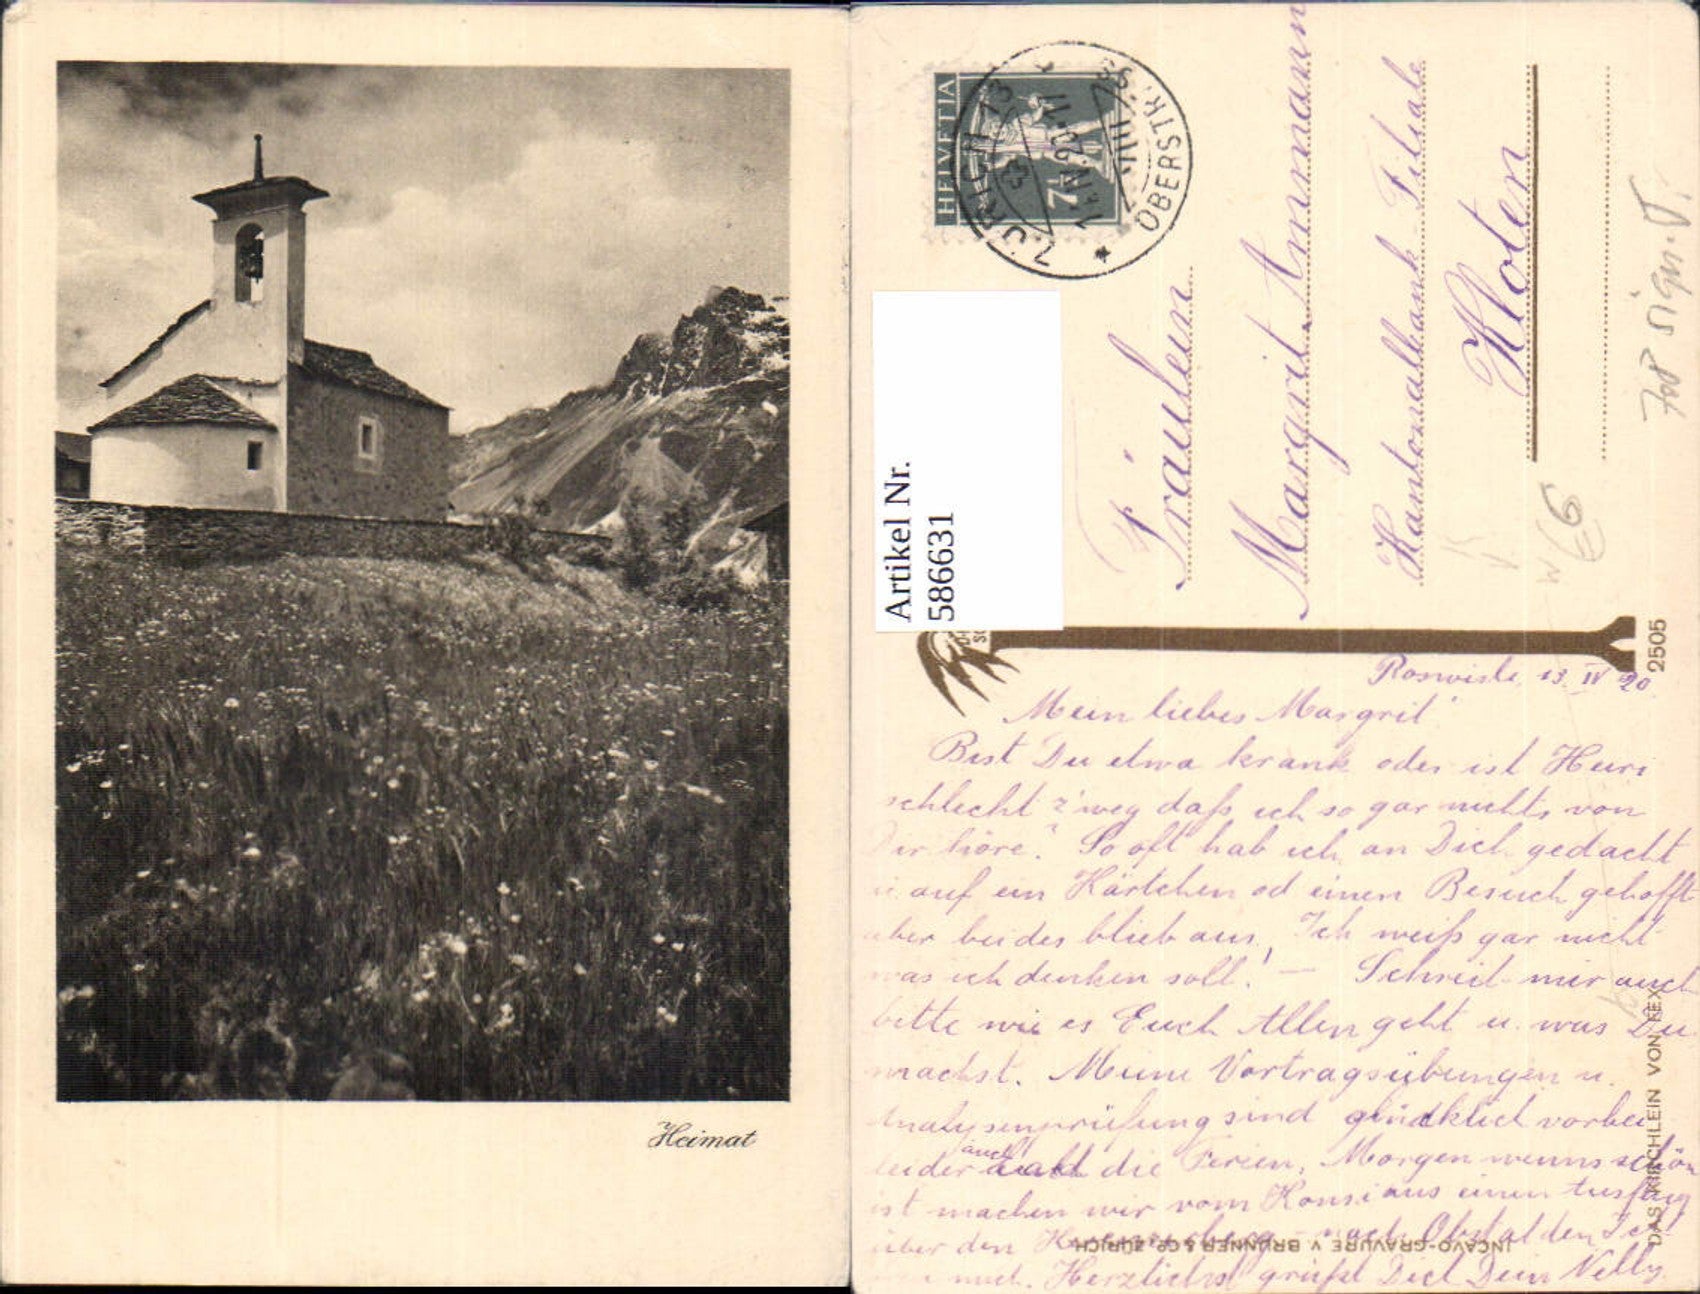 Heimat
HELVETIA
7½
ZÜRICH 13
OBERSTR.
Artikel Nr.
586631
Fräulein
Margrit Ammann
Kantonalbank Filiale
Kloten
2505
DAS KIRCHLEIN VON FEX
INCAVO-GRAVURE V BRUNNER & Co. ZÜRICH
13. IV 20.
Mein liebes Margrit!
Bist Du etwa krank oder ist Heiri
schlecht z'weg daß ich so gar nichts von
Dir höre? So oft hab ich an Dich gedacht
u. auf ein Kärtchen od einen Besuch gehofft
aber beides blieb aus, Ich weiß gar nicht
was ich denken soll! — Schreib mir auch
bitte wie es Euch Allen geht u. was Du
machst. Meine Vortragsübungen u.
Analysenprüfung sind glücklich vorbei
leider auch bald die Ferien, Morgen wenns schön
ist machen wir vom Konsi aus einen Ausflug
über den nach Obstalden
Herzlichst grüßt Dich Dein Nelly